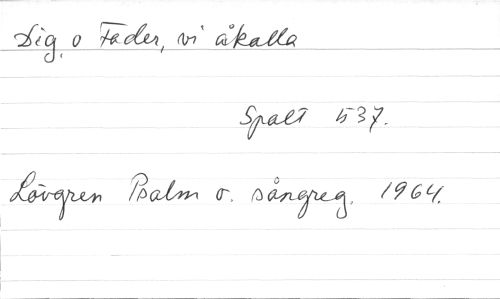 Dig, o Fader, vi åkalla
Spalt 537.
Lövgren Psalm o. sångreg. 1964.